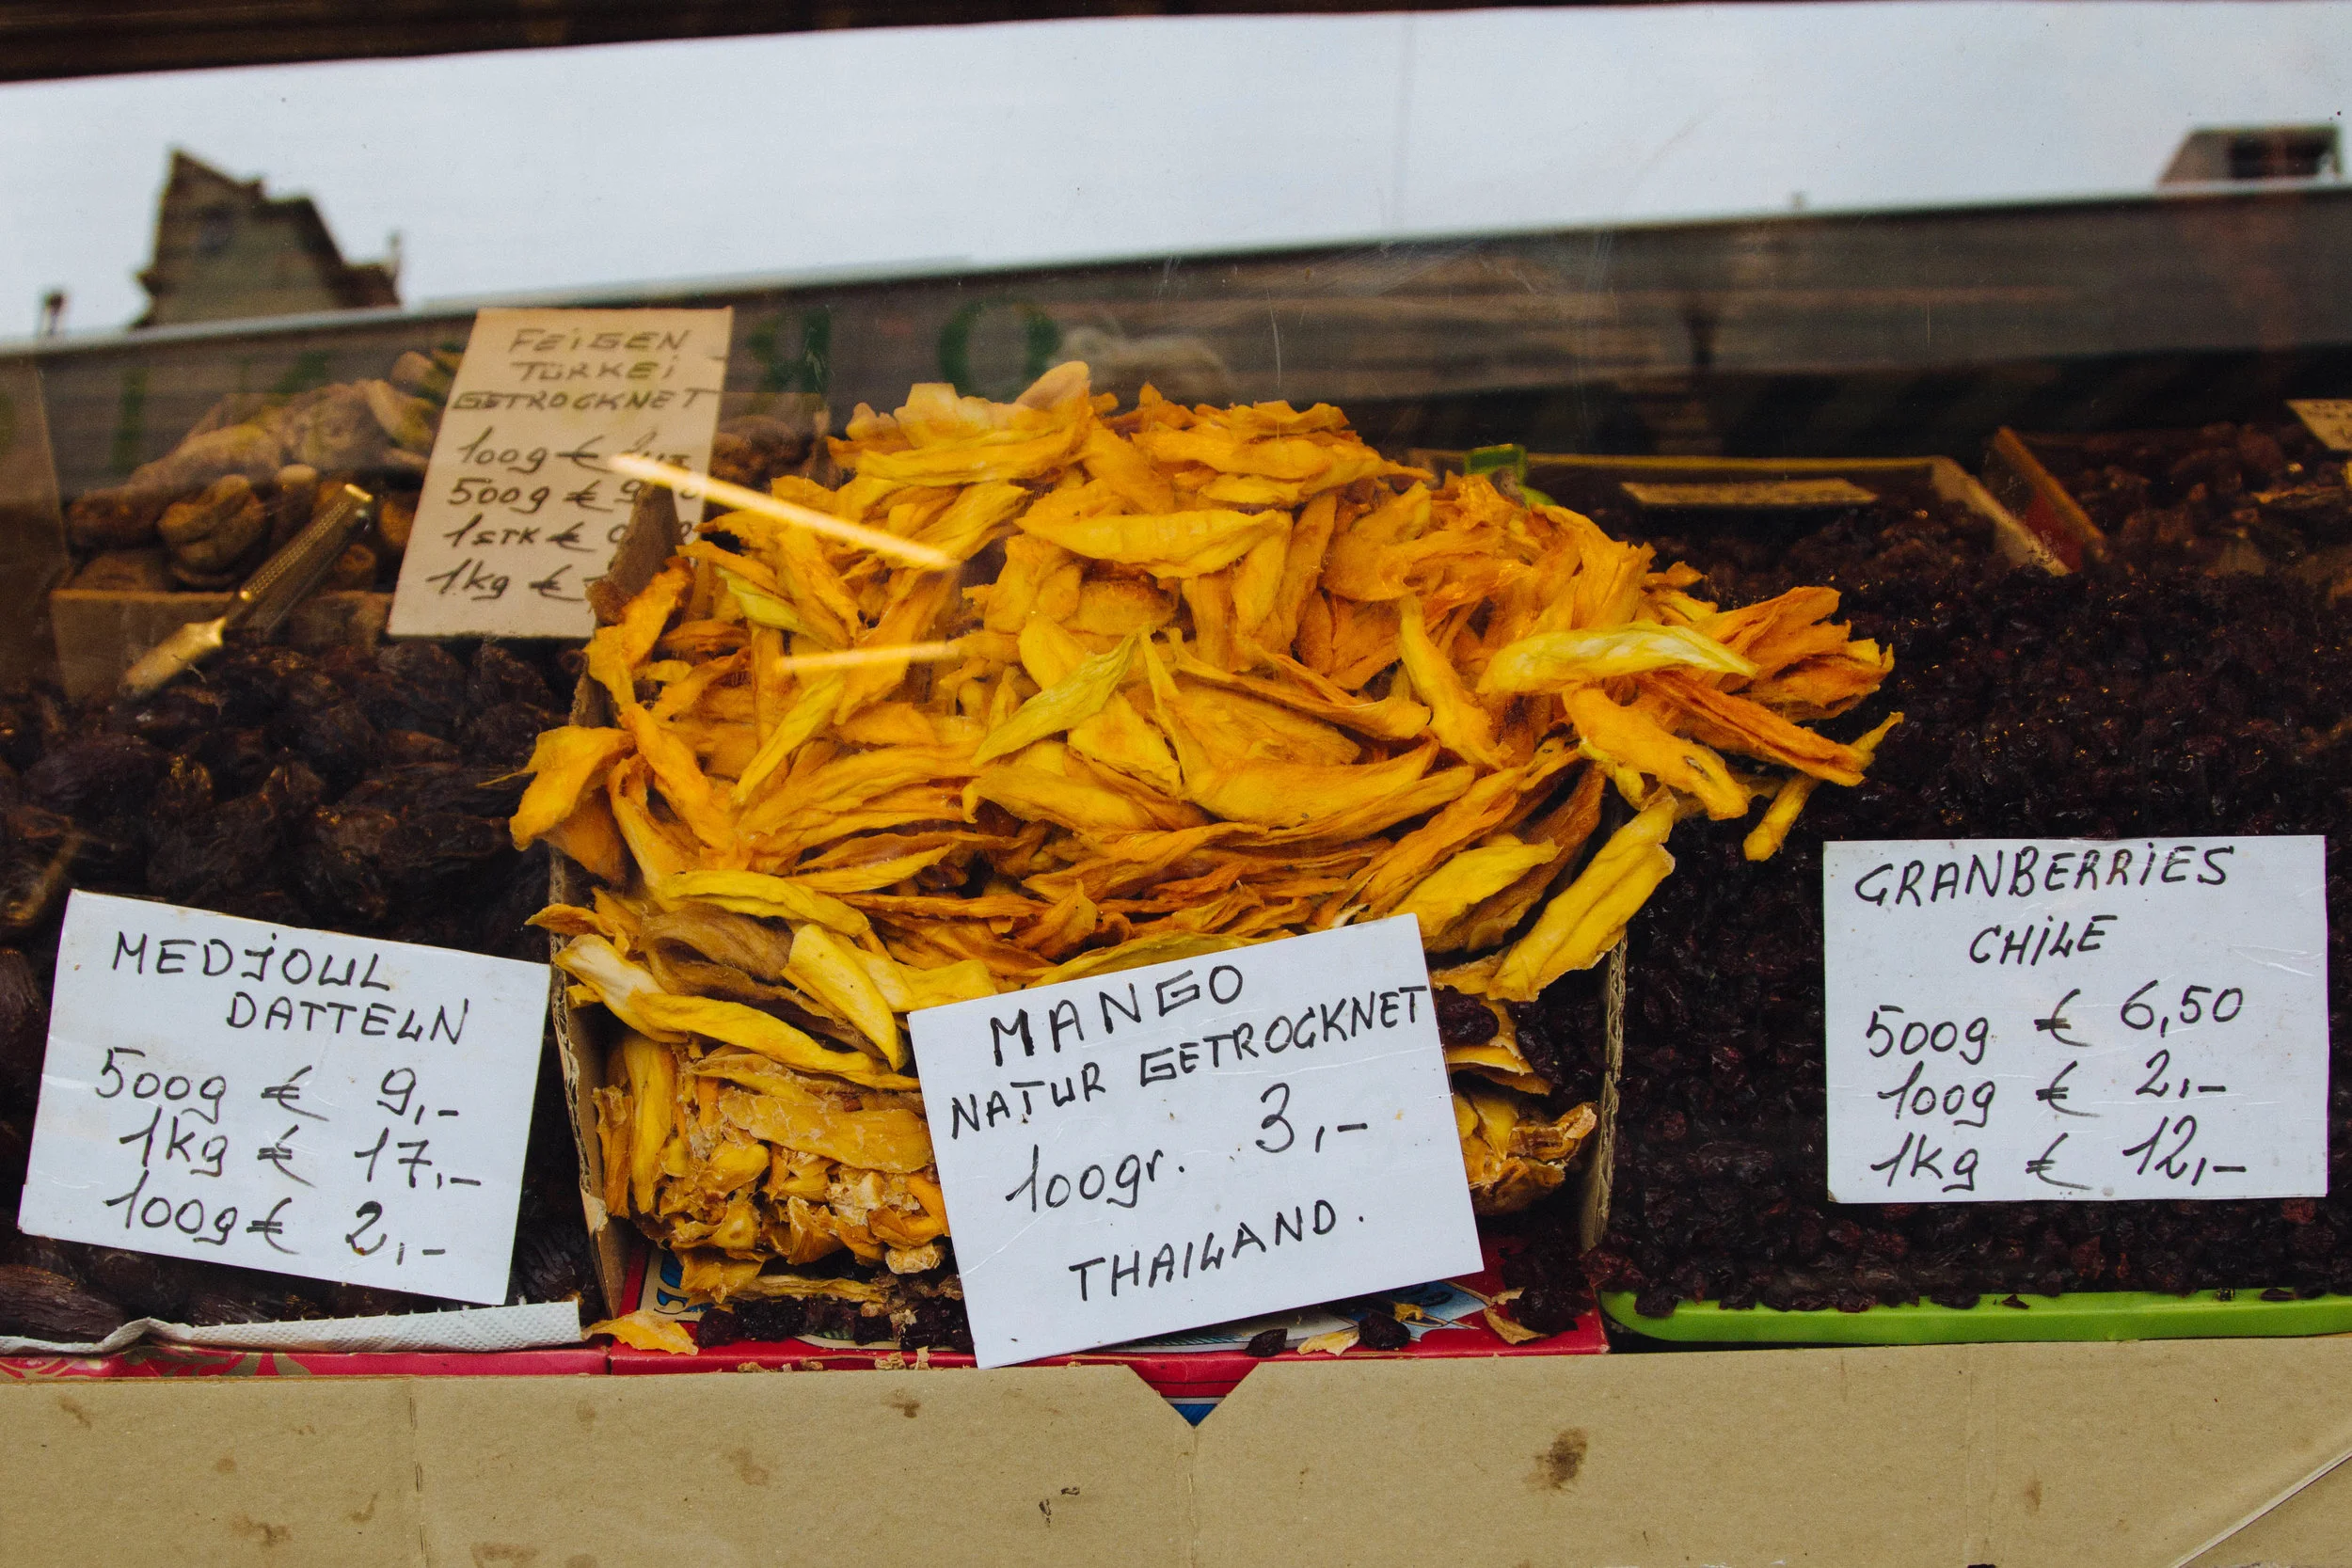 FEIGEN
TÜRKEI
GETROCKNET
100g €
500g €
1STK €
1kg €
MEDJOUL
DATTELN
500g € 9,-
1kg € 17,-
100g € 2,-
MANGO
NATUR GETROCKNET
100gr. 3,-
THAILAND.
CRANBERRIES
CHILE
500g € 6,50
100g € 2,-
1kg € 12,-